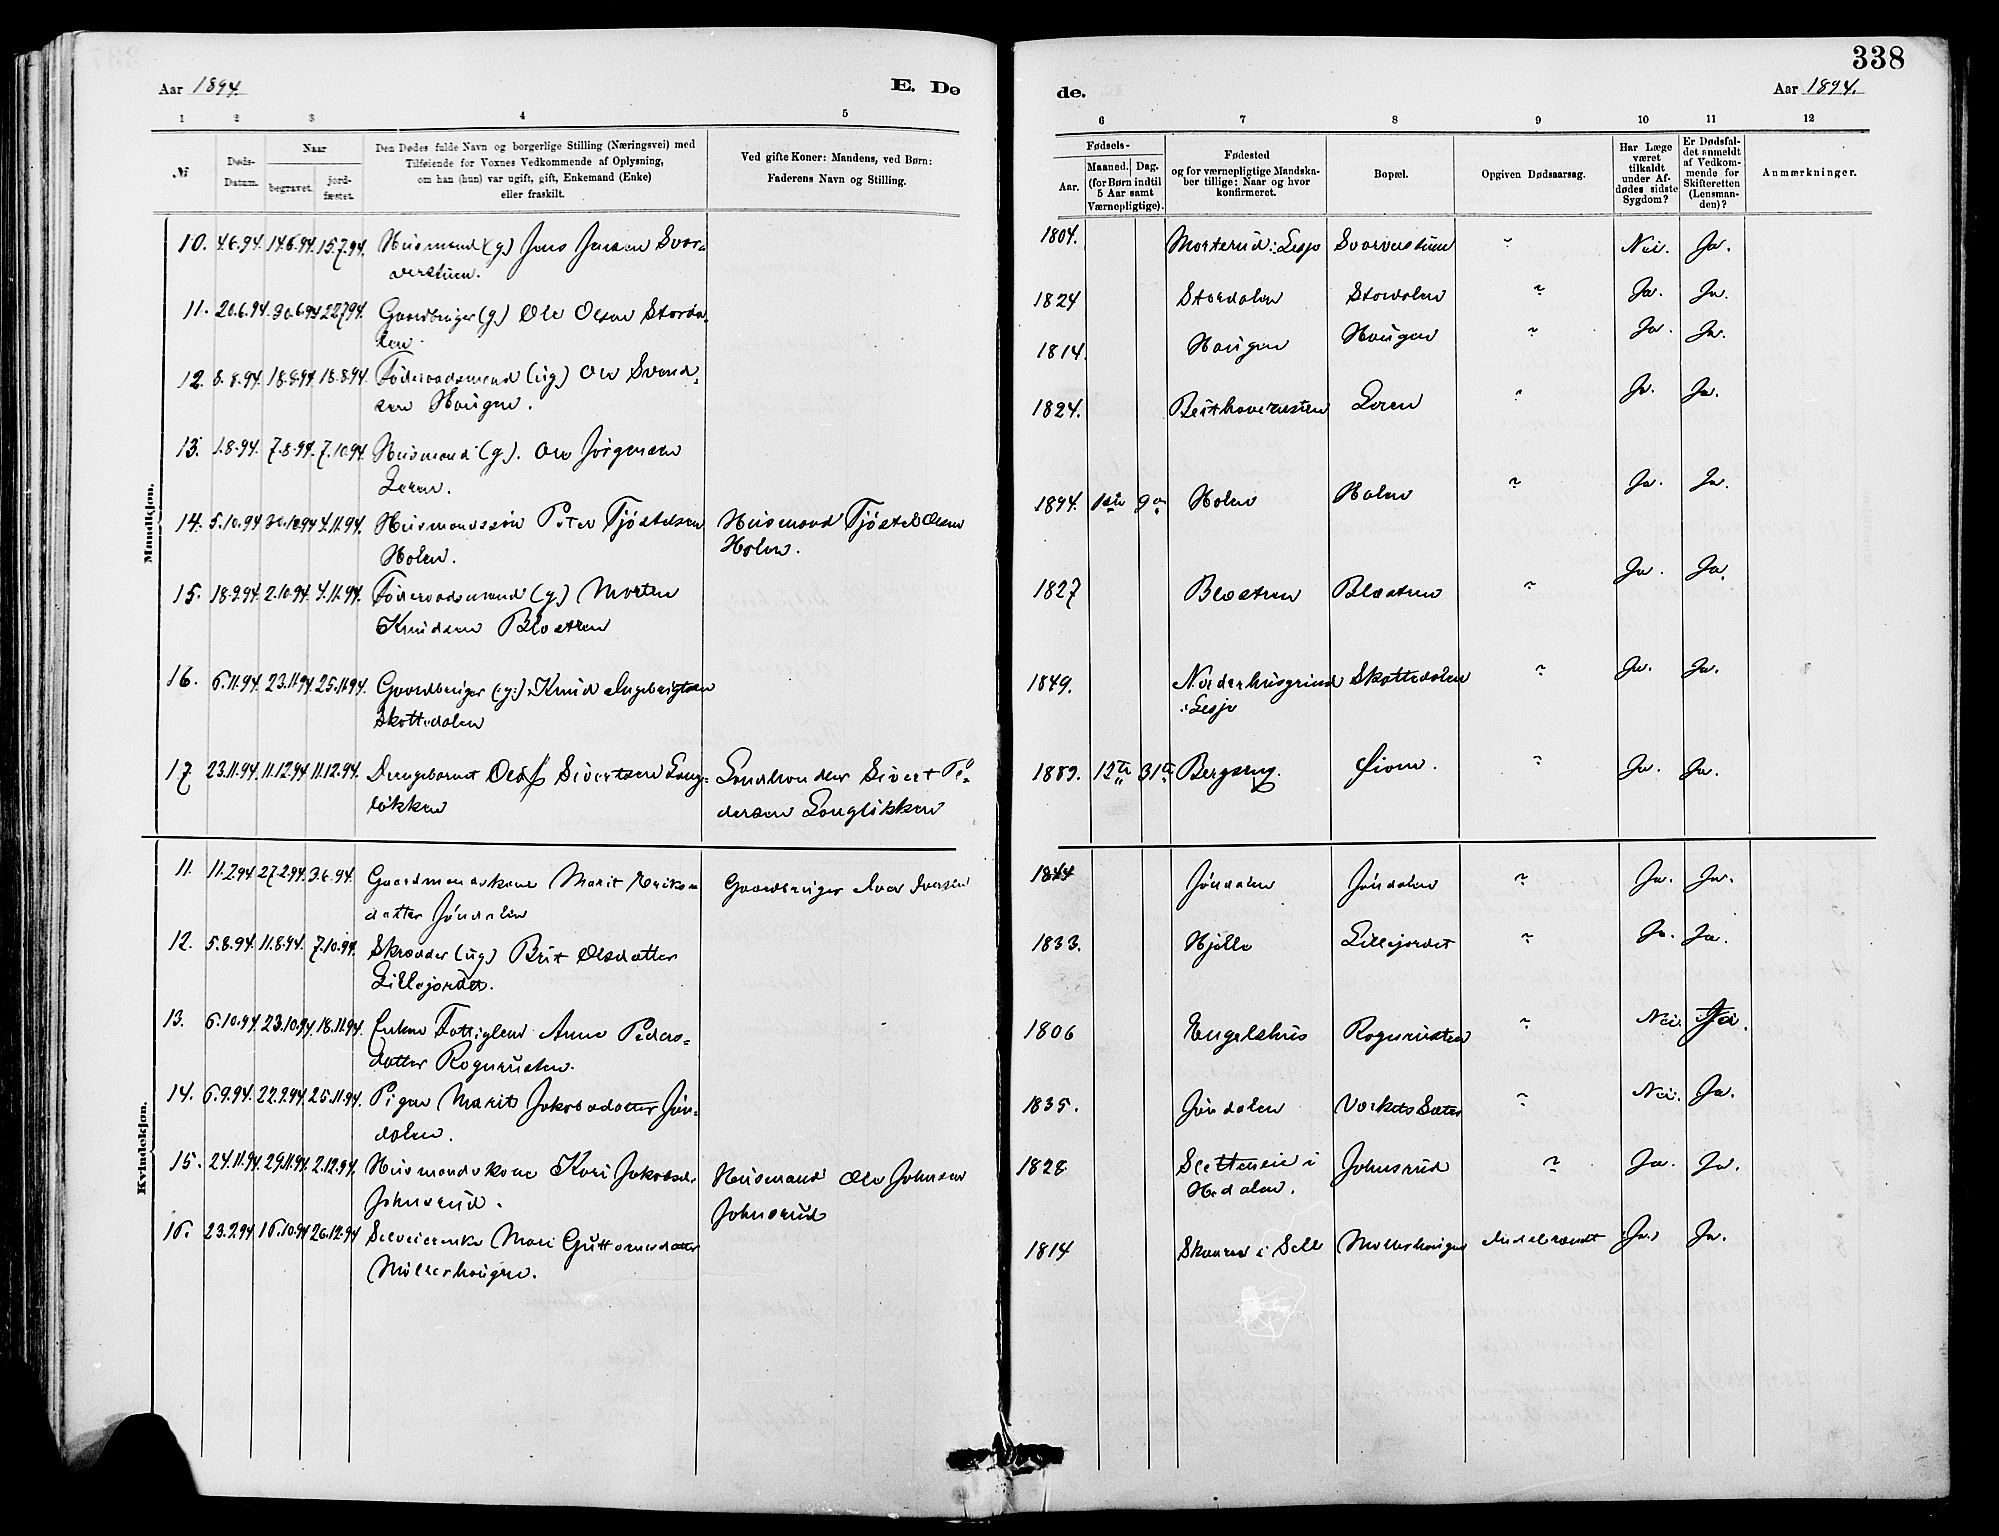 338
Aar 1894.
E. Dø
de.
Aar 1894.
1 2 3 4 5
6 7 8 9 10 11 12
№
Døds-
Datum.
Naar
begravet.
jord-
fæstet.
Den Dødes fulde Navn og borgerlige Stilling (Næringsvei) med
Tilføiende for Voxnes Vedkommende af Oplysning,
om han (hun) var ugift, gift, Enkemand (Enke)
eller fraskilt.
Ved gifte Koner: Mandens, ved Børn:
Faderens Navn og Stilling.
Fødsels-
Aar.
Maaned. Dag.
(for Børn indtil
5 Aar samt
Værnepligtige).
Fødested
og for værnepligtige Mandska-
ber tillige: Naar og hvor
konfirmeret.
Bopæl.
Opgiven Dødsaarsag.
Har Læge
været
tilkaldt
under Af-
dødes sidste
Sygdom?
Er Dødsfal-
det anmeldt
af Vedkom-
mende for
Skifteretten
(Lensman-
den)?
Anmærkninger.
Mandkjøn.
10. 4.6.94. 14.6.94. 15.7.94. Husmand (g) Jens Jensen Svar- 1804. Morterud i Lesje Svarverstuen " Nei. Ja.
verstuen.
11. 20.6.94. 30.6.94 22.7.94. Gaardbruger (g.) Ole Olsen Storda- 1824 Stordalen Stordalen " Ja. Ja.
len.
12. 8.8.94. 18.8.94. 18.8.94. Föderaadsmand (ug.) Ole Svend- 1814. Haugen Haugen " Ja. Ja.
sen Haugen.
13. 1.8.94. 7.8.94. 7.10.94. Husmand (g). Ole Jörgensen 1824. Leren " Ja. Ja.
Leren.
14. 5.10.94. 30.10.94 4.11.94. Husmandssön Peter Tjöstelsen Husmand Tjöstel Olsen 1894. Holen Holen " Ja. Ja.
Holen. Holen.
15. 18.9.94. 2.10.94. 4.11.94. Föderaadsmand (g.) Morten 1827 Blæstren Blæstren " Ja. Ja.
Knudsen Blæstren
16. 6.11.94. 23.11.94 25.11.94. Gaardbruger (g.) Knud Ingebrigtsen 1849. Norderhusgrind Skottedalen " Ja. Ja.
Skottedalen i Lesje
17. 23.11.94. 11.12.94. 11.12.94. Drengebarnet Olaf Sivertsen Lang- Landhandler Sivert Pe- 1889. 12te 31te Bergseng. Öien. " Ja. Ja.
lökken dersen Langlökken
Kvindekjøn.
11. 11.2.94 27.2.94. 3.6.94. Gaardmandskone Marit Eriks- Gaardbruger Iver Iversen 1844 Jöndalen Jöndalen " Ja. Ja.
datter Jöndalen
12. 5.8.94. 11.8.94. 7.10.94. Skrædder (ug.) Brit Olsdatter 1833. Hjelle Lillejordet " Ja. Ja.
Lillejordet.
13. 6.10.94. 23.10.94. 18.11.94. Enken Fattiglem Anne Peders- 1806 Engelshus Rognrusten " Nei.
datter Rognrusten.
14. 6.9.94. 22.9.94. 25.11.94. Pigen Marit Jakobsdatter Jön- 1835. Jöndalen " Nei. Ja.
dalen.
15. 24.11.94. 29.11.94. 2.12.94. Husmandskone Kari Jakobsd. Husmand Ole Johnsen 1828 Sletteneie i Johnsrud " Ja. Ja.
Johnsrud. Johnsrud Hedalen.
16. 23.9.94. 16.10.94 26.12.94 Selveierenke Mari Guttormsdatter 1814 i Sell Möllerhaugen Ja. Ja.
Möllerhaugen.